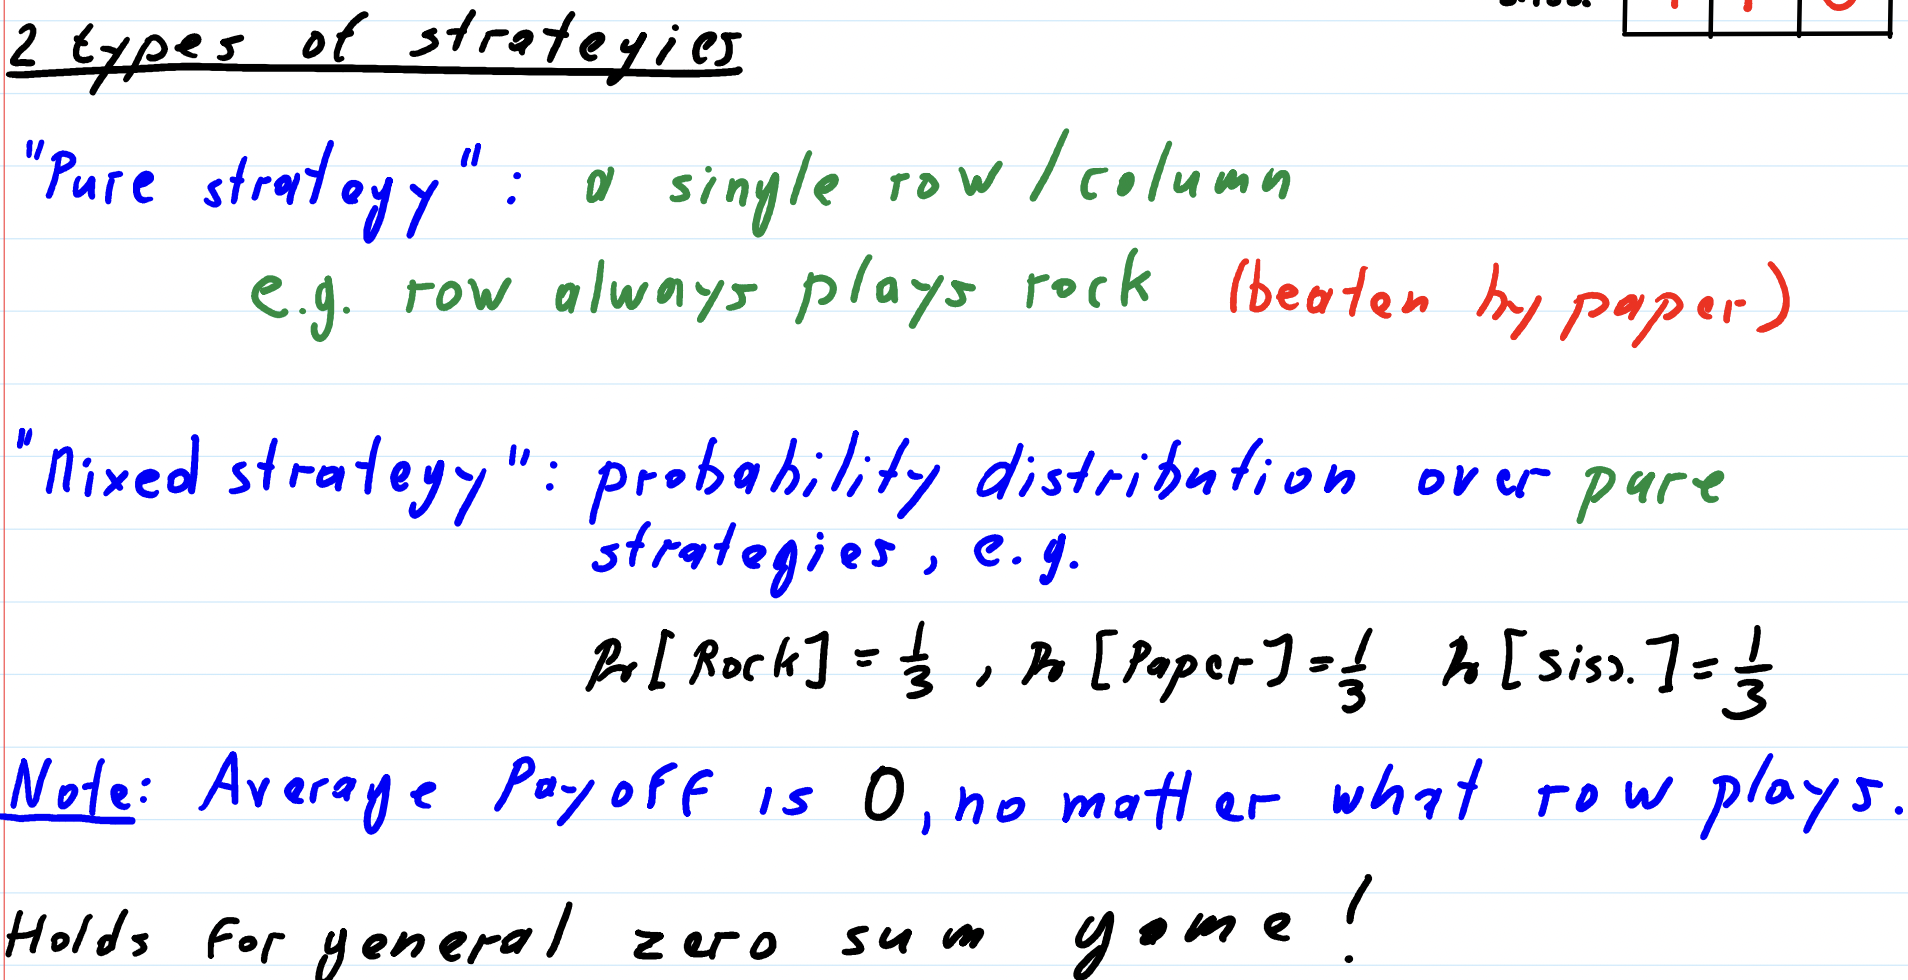 2 types of strategies
"Pure strategy": a single row/column
e.g. row always plays rock (beaten by paper)
"Mixed strategy": probability distribution over pure
strategies, e.g.
Pr[Rock] = 1/3, Pr[Paper] = 1/3 Pr[Siss.] = 1/3
Note: Average Payoff is 0, no matter what row plays.
Holds for general zero sum game!